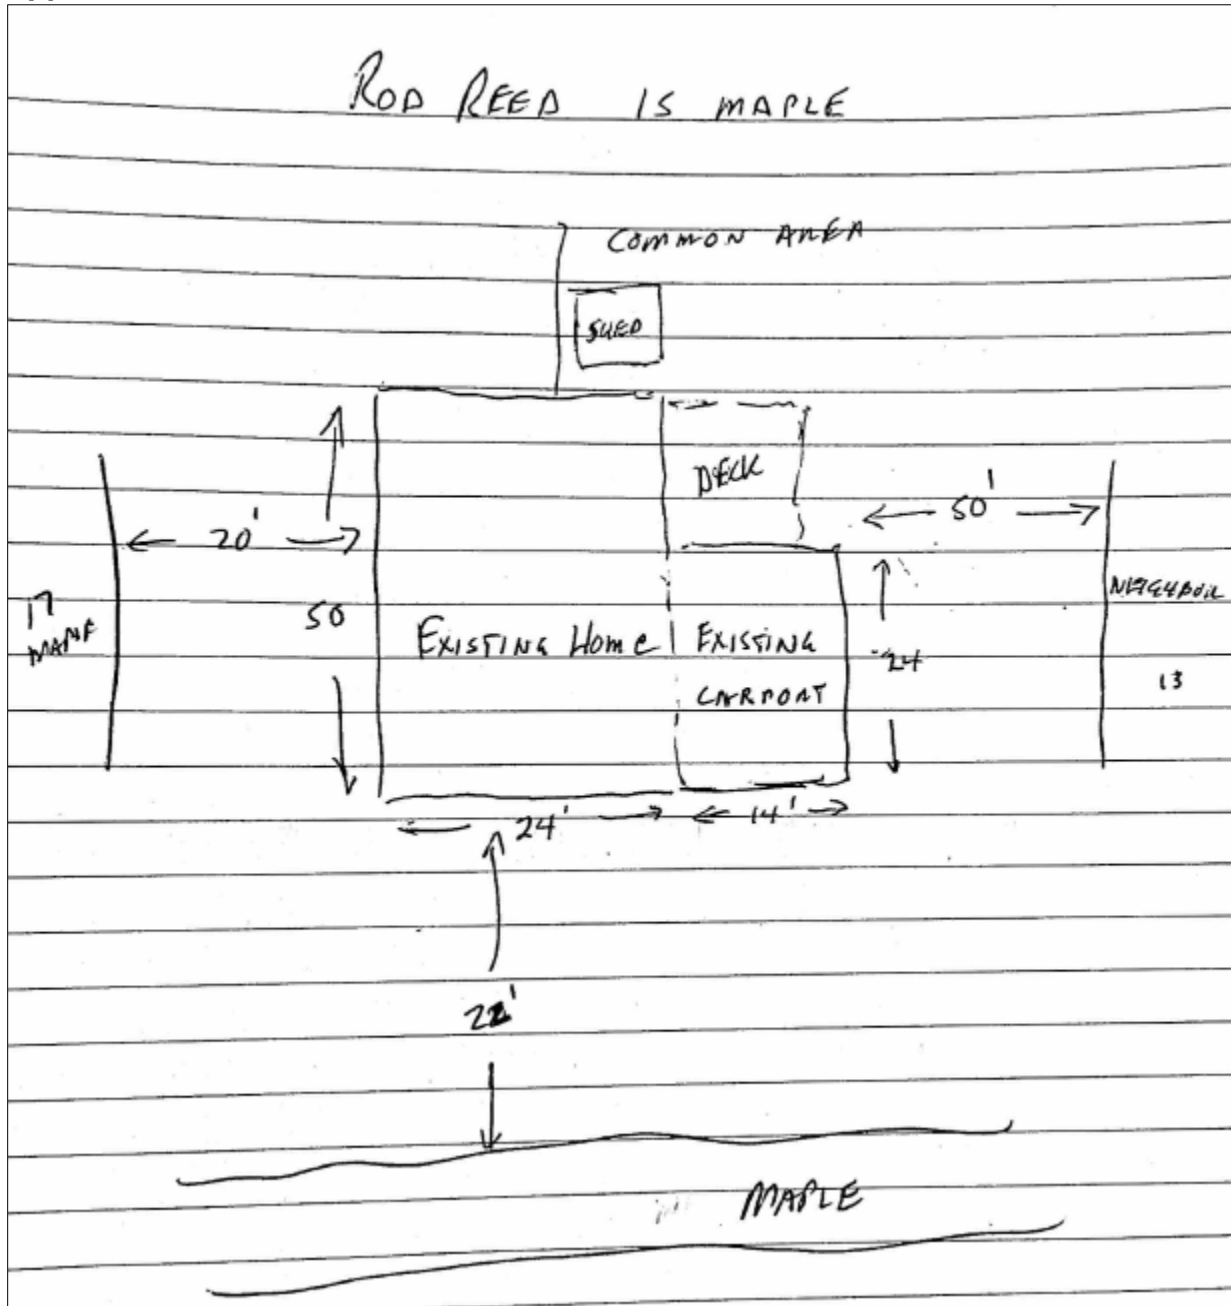 ROD REED 15 MAPLE
COMMON AREA
SHED
DECK
20'
50'
17
MAPLE
50
EXISTING HOME
EXISTING
CARPORT
24
NEIGHBOR
13
24'
14'
22'
MAPLE